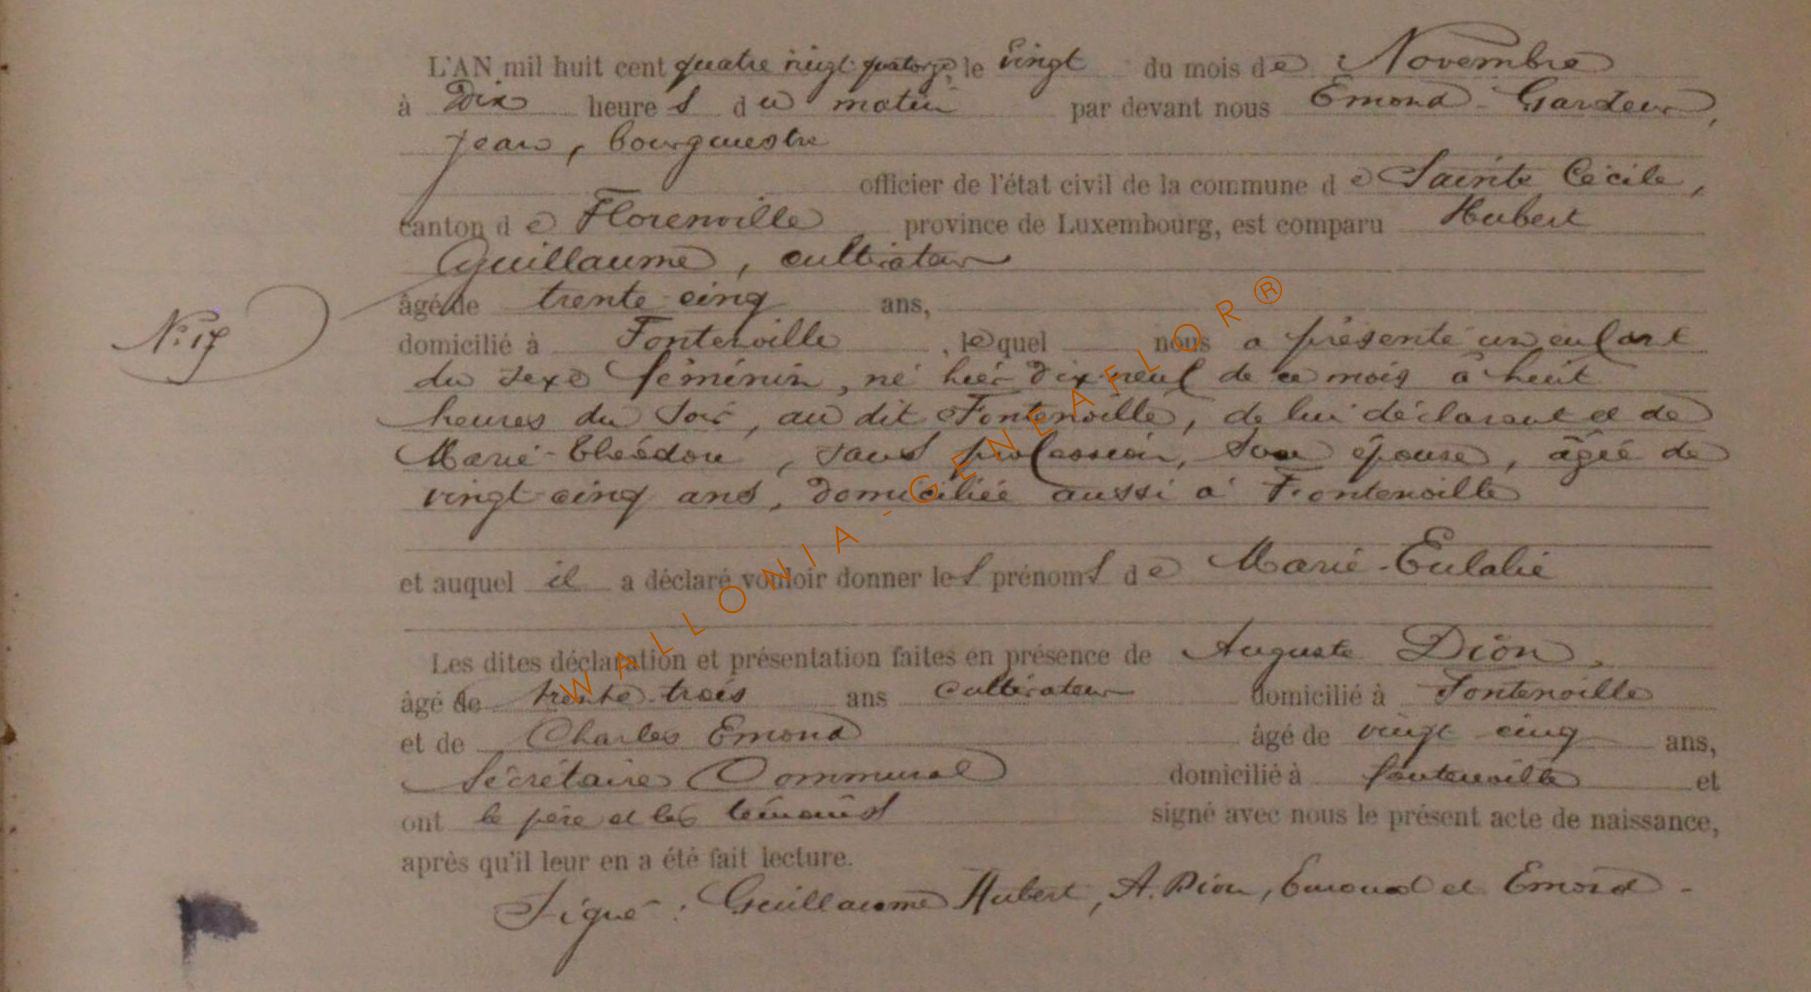 L'AN mil huit cent quatre vingt quatorze, le vingt du mois de Novembre
à Dix heures du matin par devant nous Emond-Gardeur,
Jean, bourgmestre
officier de l'état civil de la commune de Sainte Cécile,
canton de Florenville province de Luxembourg, est comparu Hubert
Guillaume, cultivateur
âgé de trente-cinq ans,
N° 17
domicilié à Fontenoille, lequel nous a présenté un enfant
du sexe féminin, né hier dix neuf de ce mois à huit
heures du soir, au dit Fontenoille, de lui déclarant et de
Marie, sans profession, son épouse, âgée de
vingt cinq ans, domiciliée aussi à Fontenoille
et auquel il a déclaré vouloir donner les prénoms de Marie-Eulalie
Les dites déclaration et présentation faites en présence de Auguste Dion,
âgé de trente-trois ans cultivateur domicilié à Fontenoille
et de Charles Emond âgé de vingt cinq ans,
Secrétaire Communal domicilié à fontenoille et
ont le père et les témoins signé avec nous le présent acte de naissance,
après qu'il leur en a été fait lecture.
Signé : Guillaume Hubert, A. Dion, Emond et Emond -
WALLONIA-GENEAFLOR®